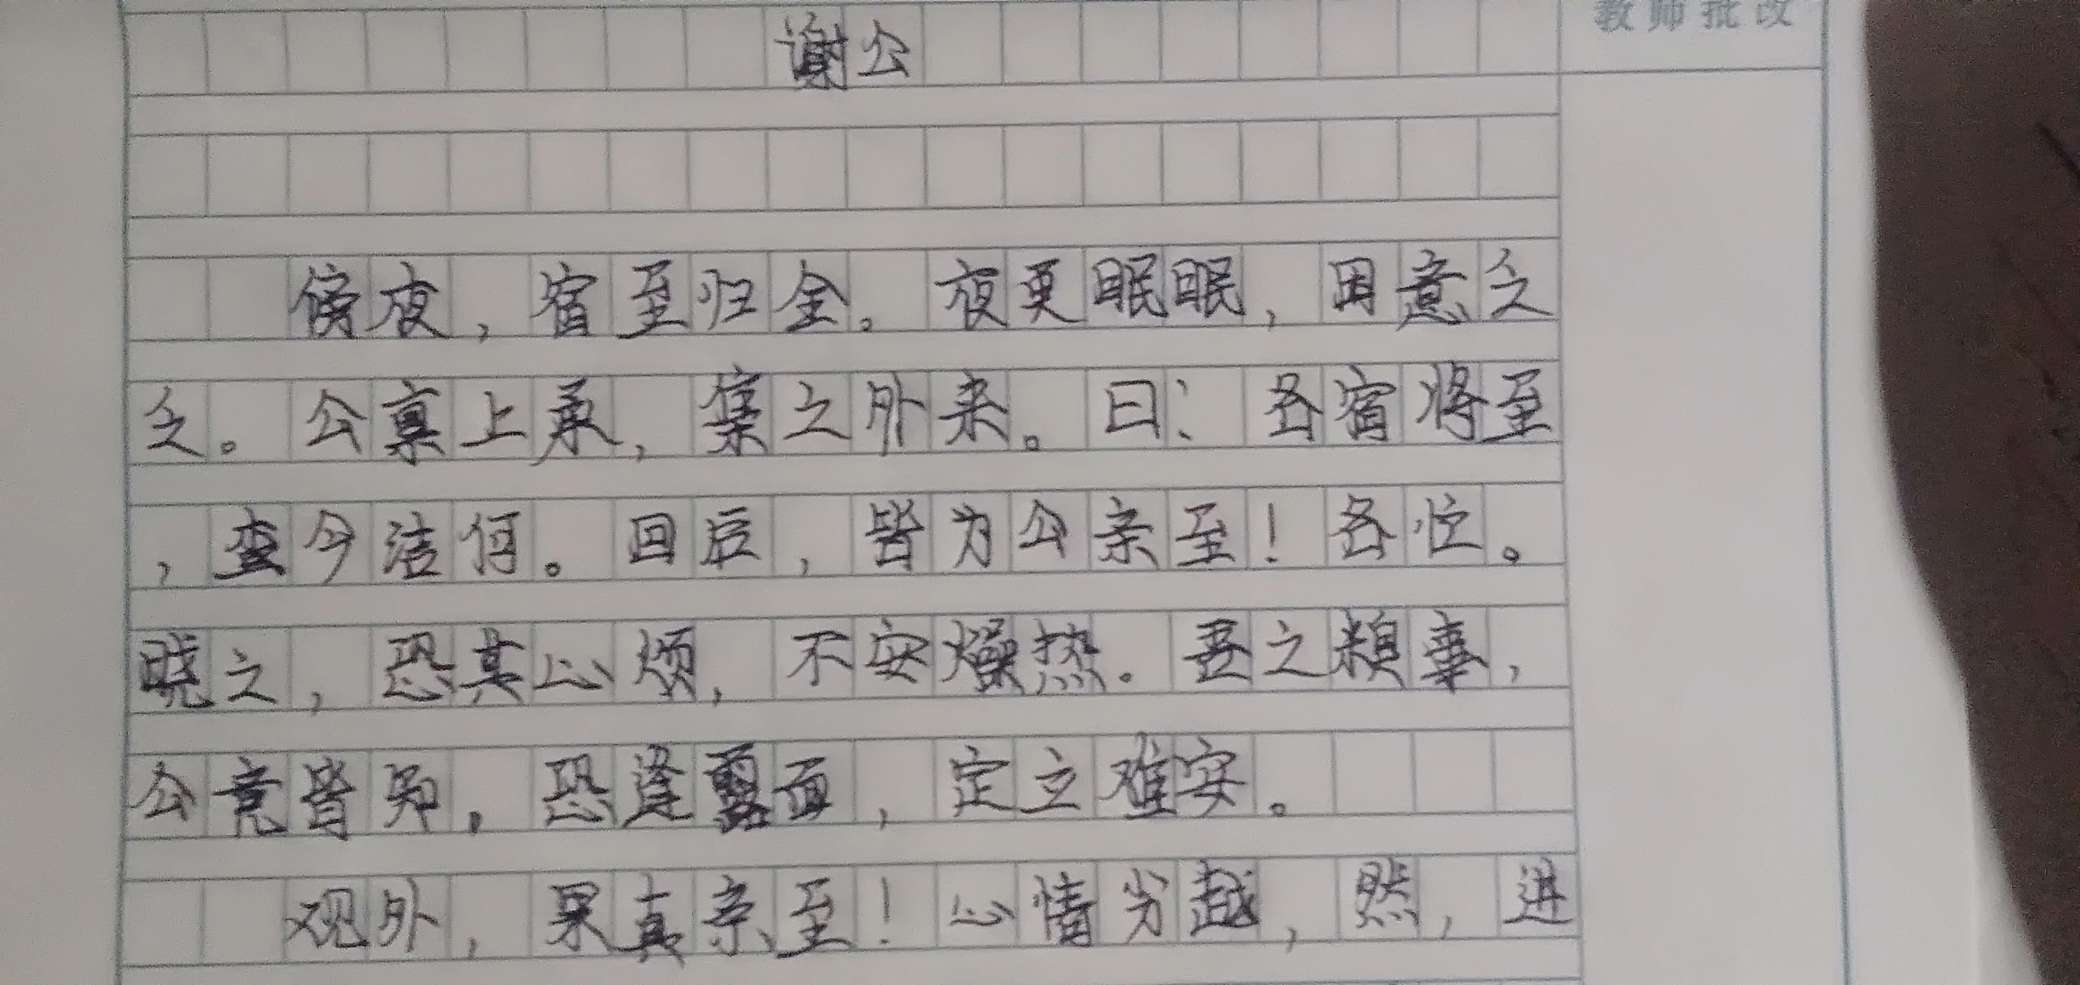 教师批改
谢公
傍夜，宿至归全。夜更眠眠，困意之
之。公真上承，集之外来。曰：各宿将至
，查今洁何。回后，皆为公亲至！各忙。
晓之，恐其心烦，不安燥热。吾之频事，
公竟皆知。恐逢露面，定立难安。
观外，果真亲至！心情劣越，然，进